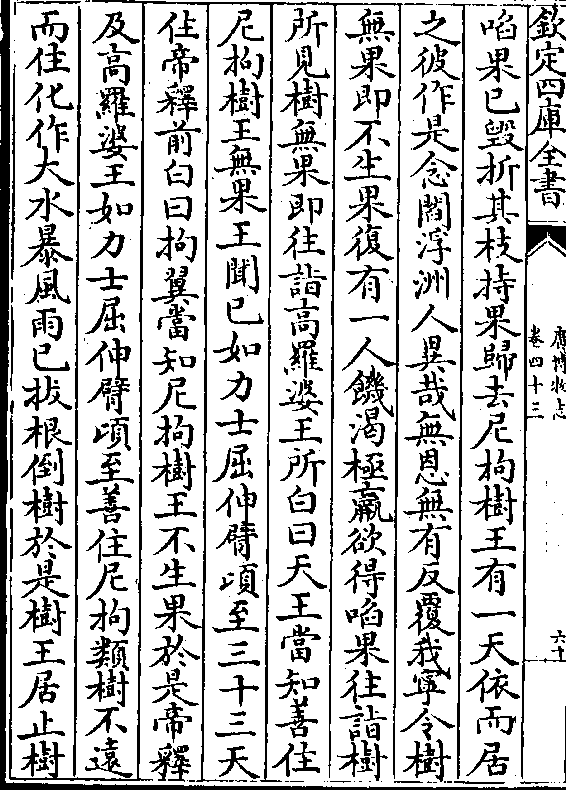 欽定四庫全書
廣博物志
卷四十三
六十
啗果已毀折其枝持果歸去尼拘樹王有一天依而居
之彼作是念閻浮洲人異哉無恩無有反覆我寧令樹
無果即不生果復有一人饑渴極羸欲得啗果往詣樹
所見樹無果即往詣高羅婆王所白曰天王當知善住
尼拘樹王無果王聞已如力士屈伸臂頃至三十三天
住帝釋前白曰拘翼當知尼拘樹王不生果於是帝釋
及高羅婆王如力士屈伸臂頃至善住尼拘類樹不遠
而住化作大水暴風雨已拔根倒樹於是樹王居止樹